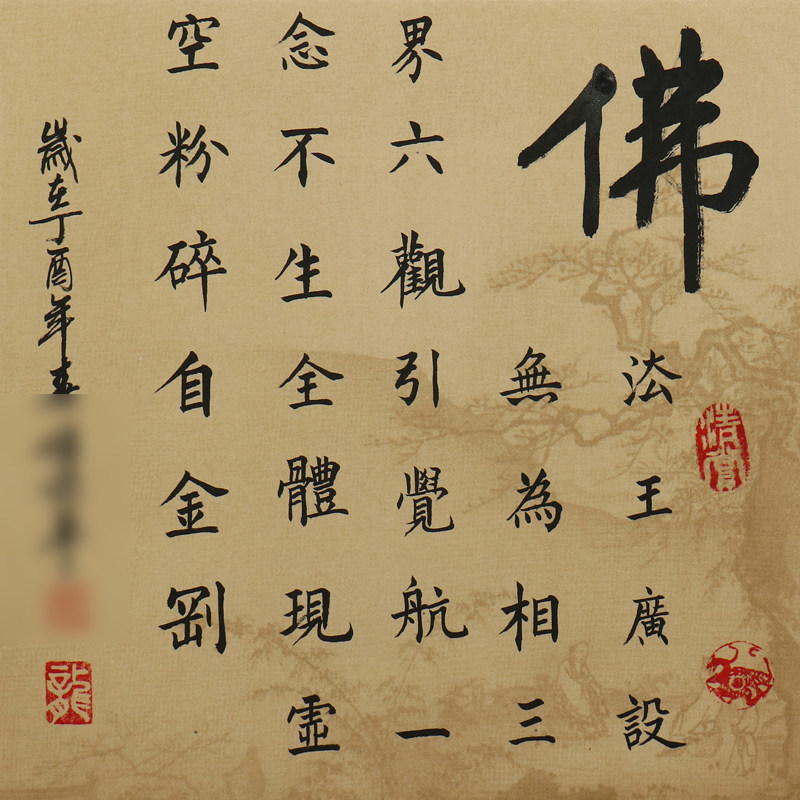 佛
法王廣設
無為相三
界六觀引覺航一
念不生全體現虛
空粉碎自金剛
歲在丁酉年春
龍